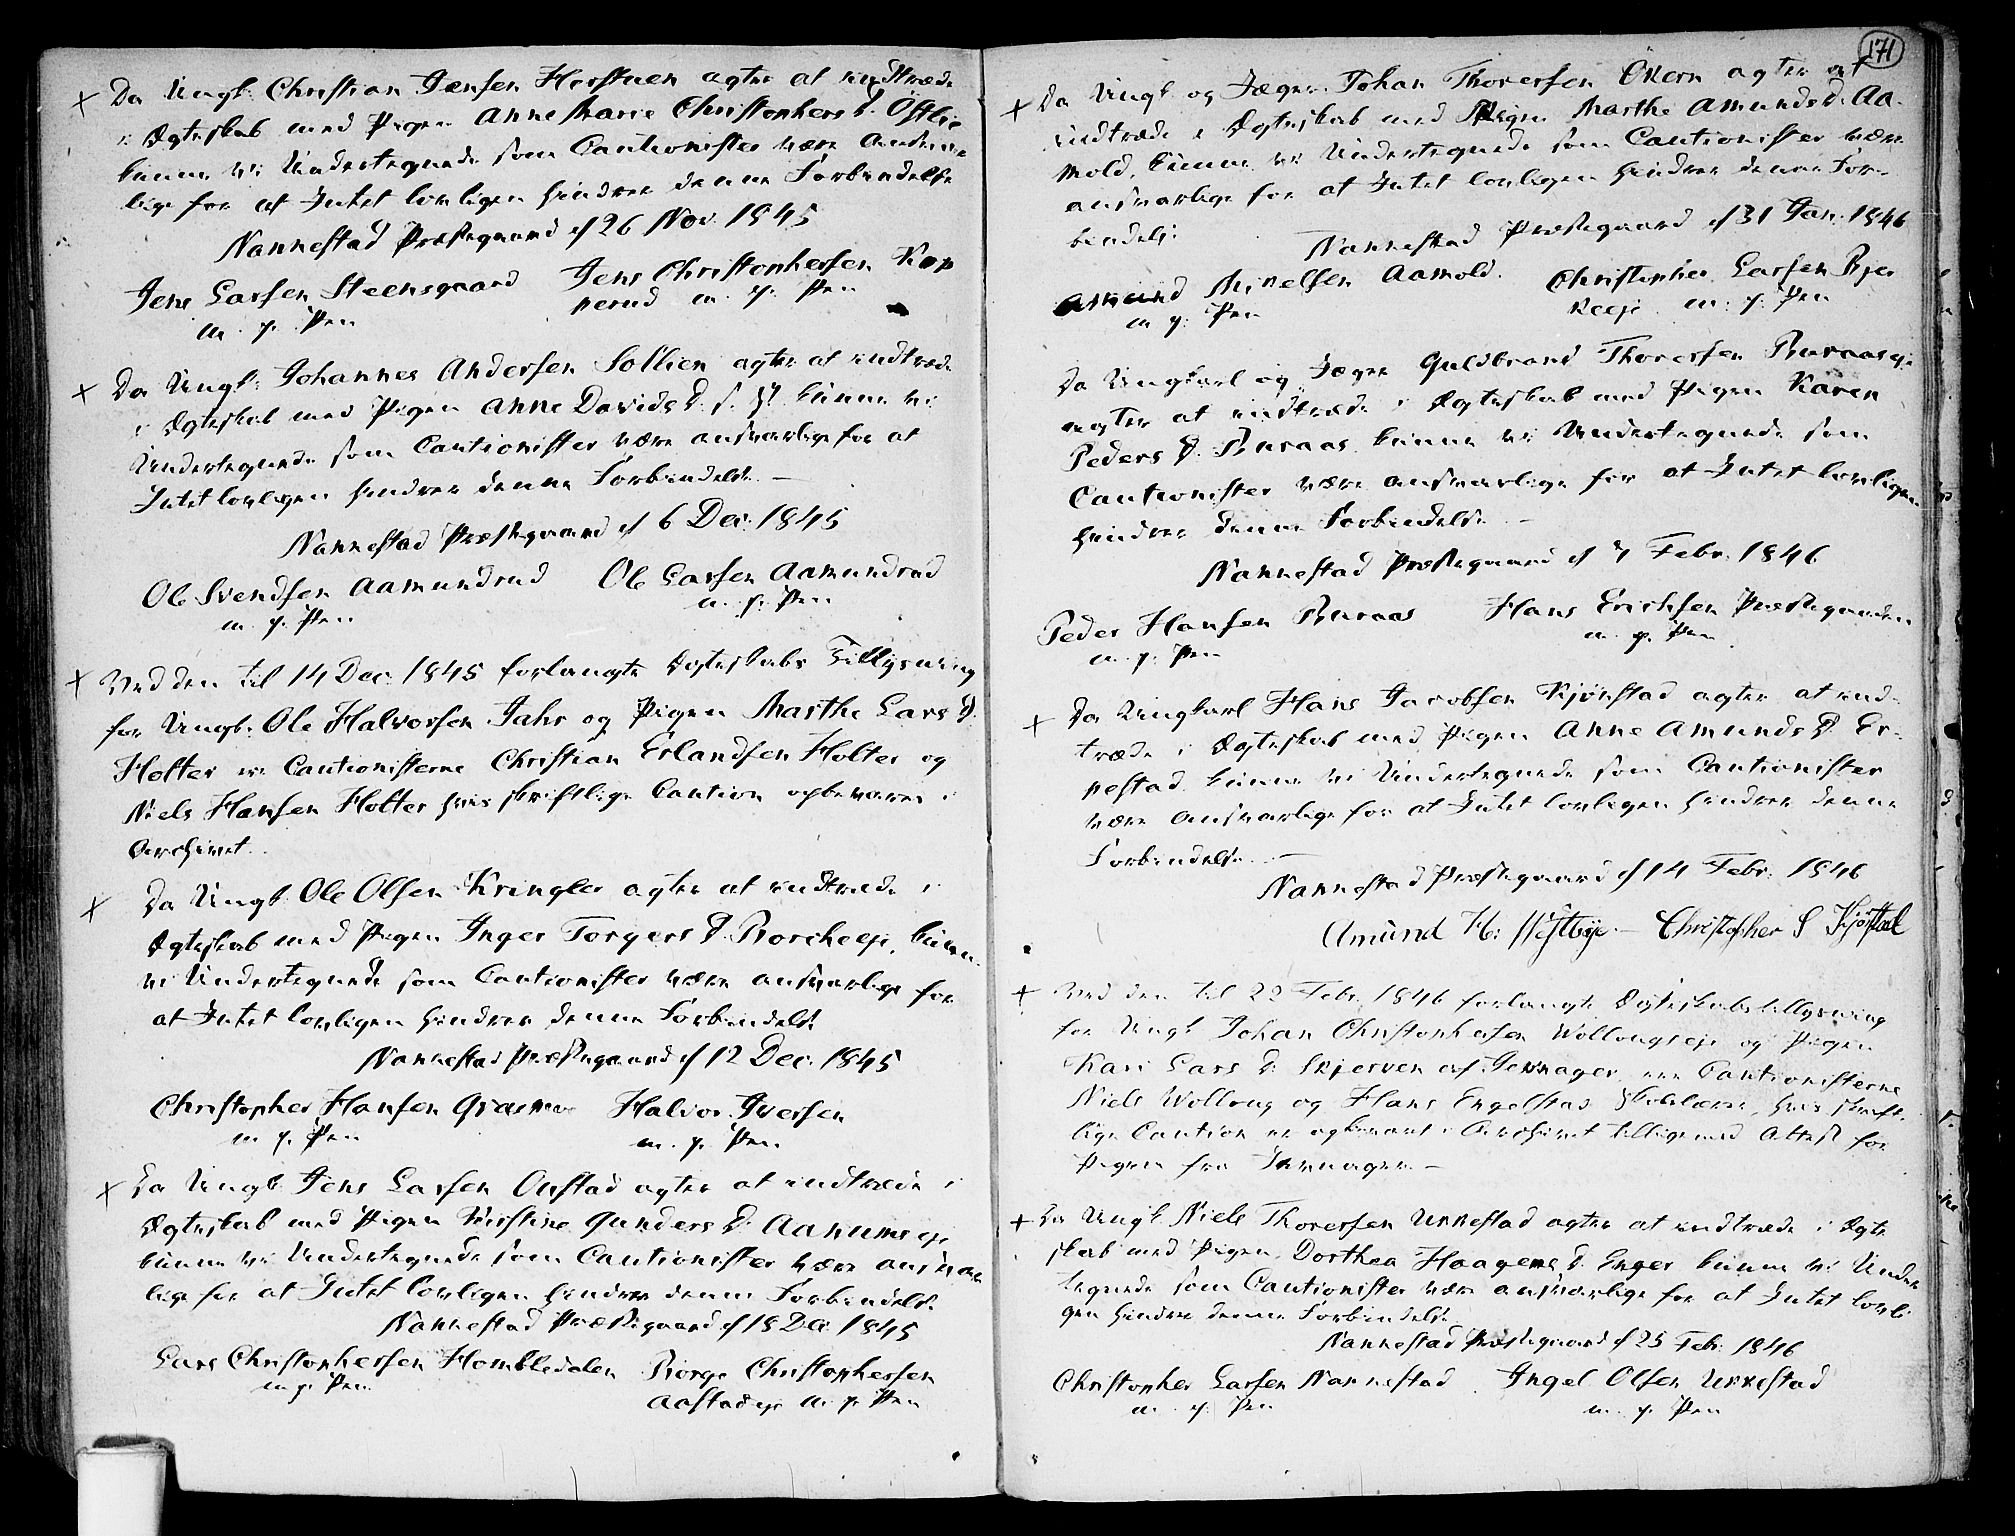 Da Ungk. Christian Jensen Horstuen agter at indtræde
i Ægteskab med Pigen Anne Marie Christophers D. Østlie
kunne vi Undertegnede som Cautionister være ansvar-
lige for at Intet lovligen hindrer denne Forbindelse
Nannestad Præstegaard d 26 Nov. 1845
Jens Larsen Steensgaard Jens Christophersen Kop
m. p. Pen perud m. p. Pen
Da Ungk. Johannes Andersen Sollien agter at indtræde
i Ægteskab med Pigen Anne Davids D. s. St. kunne vi
Undertegnede som Cautionister være ansvarlige for at
Intet lovligen hindrer denne Forbindelse. —
Nannestad Præstegaard d 6 Dec. 1845
Ole Svendsen Aamundrud Ole Larsen Aamundrud
m. p. Pen m. p. Pen
Ved den til 14 Dec. 1845 forlangte Ægteskabs Tillysning
for Ungk. Ole Halvorsen Jahr og Pigen Marthe Lars D.
Holter ere Cautionisterne Christian Erlandsen Holter og
Niels Hansen Holter hvis skriftlige Caution opbevares i
Archivet.
Da Ungk. Ole Olsen Kringler agter at indtræde i
Ægteskab med Pigen Inger Torgers D. Borcheeje, kunne
vi Undertegnede som Cautionister være ansvarlige for
at Intet lovligen hindrer denne Forbindelse
Nannestad Præstegaard d 12 Dec. 1845
Christopher Hansen Halvor Iversen
m. p. Pen m. p. Pen
Da Ungk. Jens Larsen Onstad agter at indtræde i
Ægteskab med Pigen Kirstine Gunders D. Aanums eje
kunne vi Undertegnede som Cautionister være ansvar
lige for at Intet lovligen hindrer denne Forbindelse
Nannestad Præstegaard d 18 Dec 1845
Lars Christophersen Hombledalen Borge Christophersen
m. p. Pen Aastadeje m. p. Pen
171
Da Ungk. og Jæger Johan Thoversen Økern agter at
indtræde i Ægteskab med Pigen Marthe Amunds D. Aa-
mold, kunne vi Undertegnede som Cautionister være
ansvarlige for at Intet lovligen hindrer denne For-
bindelse
Nannestad Præstegaard d 31 Jan. 1846
Amund Mikelsen Aamold. Christopher Larsen Bjer
m. p. Pen keeje m. p. Pen
Da Ungkarl og Jæger Guldbrand Thoversen Buraaseje
agter at indtræde i Ægteskab med Pigen Karen
Peders D. Buraas kunne vi Undertegnede som
Cautionister være ansvarlige for at Intet lovligen
hindrer denne Forbindelse. —
Nannestad Præstegaard d 7 Febr. 1846
Peder Hansen Buraas Hans Erichsen Præstegaarden
m. p. Pen m. p. Pen
Da Ungkarl Hans Jacobsen Kjønstad agter at ind-
træde i Ægteskab med Pigen Anne Amunds D. Er-
nestad kunne vi Undertegnede som Cautionister
være ansvarlige for at Intet lovligen hindrer denne
Forbindelse. —
Nannestad Præstegaard d 14 Febr. 1846
Amund H: Westbye. — Christopher S Kjøstad
Ved den til 22 Febr. 1846 forlangte Ægteskabstillysning
for Ungk Johan Christophersen Wollongseje og Pigen
Kari Lars D. Skjerven af Jevnager ere Cautionisterne
Niels Wollong og Hans Engelstad Skolelærer, hvis skrift-
lige Caution er opbevaret i Archivet tilligemed Attest for
Pigen fra Jevnager. —
Da Ungk. Niels Thoversen Unnestad agter at indtræde i Ægte
skab med Pigen Dorthea Haagens D. Enger kunne vi Under
tegnede som Cautionister være ansvarlige for at Intet lovli
gen hindrer denne Forbindelse
Nannestad Præstegaard d 25 Feb. 1846
Christopher Larsen Nannestad Ingel Olsen Unnestad
m. p. Pen m. p. Pen